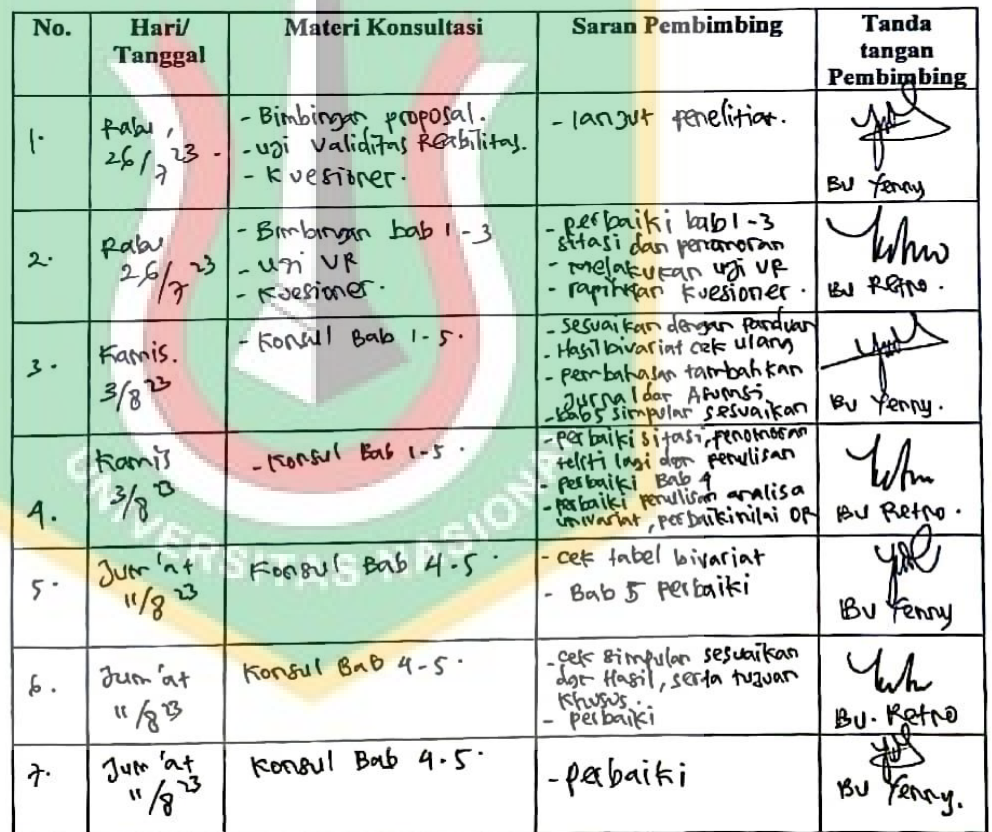 No. Hari/ Materi Konsultasi Saran Pembimbing Tanda
Tanggal tangan
Pembimbing
1. Rabu, 26/7 23.
- Bimbingan proposal.
- uji validitas Reabilitas.
- kuesioner.
- lanjut penelitian.
Bu Yenny
2. Rabu 26/7 23
- Bimbingan bab 1-3
- uji VR
- Kuesioner.
- perbaiki bab 1-3
sitasi dan penomoran
- melakukan uji VR
- rapihkan kuesioner.
Bu Retno.
3. Kamis. 3/8 23
- Konsul Bab 1-5.
- sesuaikan dengan panduan
- Hasil bivariat cek ulang
- pembahasan tambahkan
Jurnal dan Asumsi
- bab 5 simpulan sesuaikan
Bu Yenny.
4. Kamis 3/8 23
- Konsul Bab 1-5.
- perbaiki sitasi, penomoran
teliti lagi dan penulisan
- perbaiki Bab 4
- perbaiki penulisan analisa
univariat, perbaiki nilai OR
Bu Retno.
5. Jum'at 11/8 23
Konsul Bab 4-5.
- cek tabel bivariat
- Bab 5 perbaiki
Bu Yenny
6. Jum'at 11/8 23
Konsul Bab 4-5.
- cek simpulan sesuaikan
dgn Hasil, serta tujuan
khusus.
- perbaiki
Bu. Retno
7. Jum'at 11/8 23
Konsul Bab 4-5.
- perbaiki
Bu Yenny.
UNIVERSITAS NASIONAL